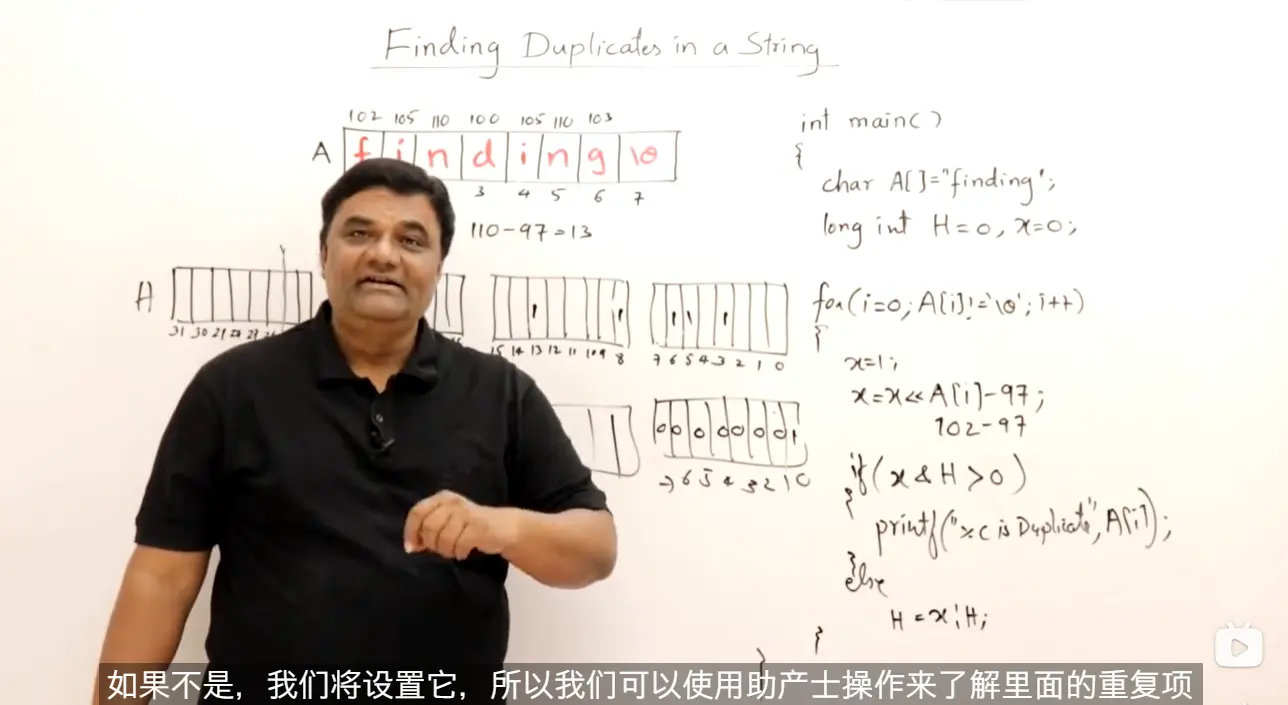 Finding Duplicates in a String
102 105 110 100 105 110 103
A f i n d i n g \0
3 4 5 6 7
110-97=13
H
31 30 29 28 27
15 14 13 12 11 10 9 8
7 6 5 4 3 2 1 0
0 0 0 0 0 0 0 1
7 6 5 4 3 2 1 0
int main()
{
char A[]="finding";
long int H=0, x=0;
for(i=0; A[i]!='\0'; i++)
{
x=1;
x=x<<A[i]-97;
102-97
if(x & H >0)
{
printf("%c is Duplicate", A[i]);
}
else
H = x|H;
}
}
如果不是，我们将设置它，所以我们可以使用助产士操作来了解里面的重复项